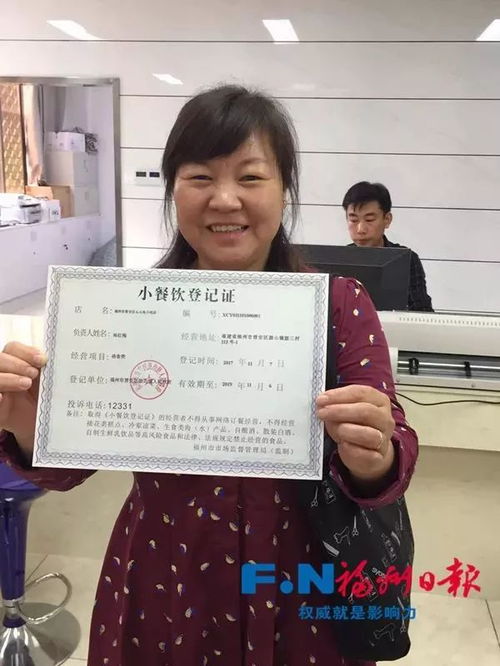 小餐饮登记证
店 名：
编 号：XCY01110100001
负责人姓名：杨红梅
经营地址：福建省福州市晋安区新店镇
经营项目：
登记时间：2017 年 11 月 7 日
登记单位：福州市晋安区
有效期至：2019 年 11 月 6 日
投诉电话：12331
备注：取得《小餐饮登记证》的经营者不得从事网络订餐经营，不得经营
裱花蛋糕点、冷荤凉菜、生食类海（水）产品、自酿酒、散装白酒、
自制生鲜乳饮品等高风险食品和法律、法规规定禁止经营的食品。
福州市市场监督管理局（监制）
F.N福州日报
权威就是影响力